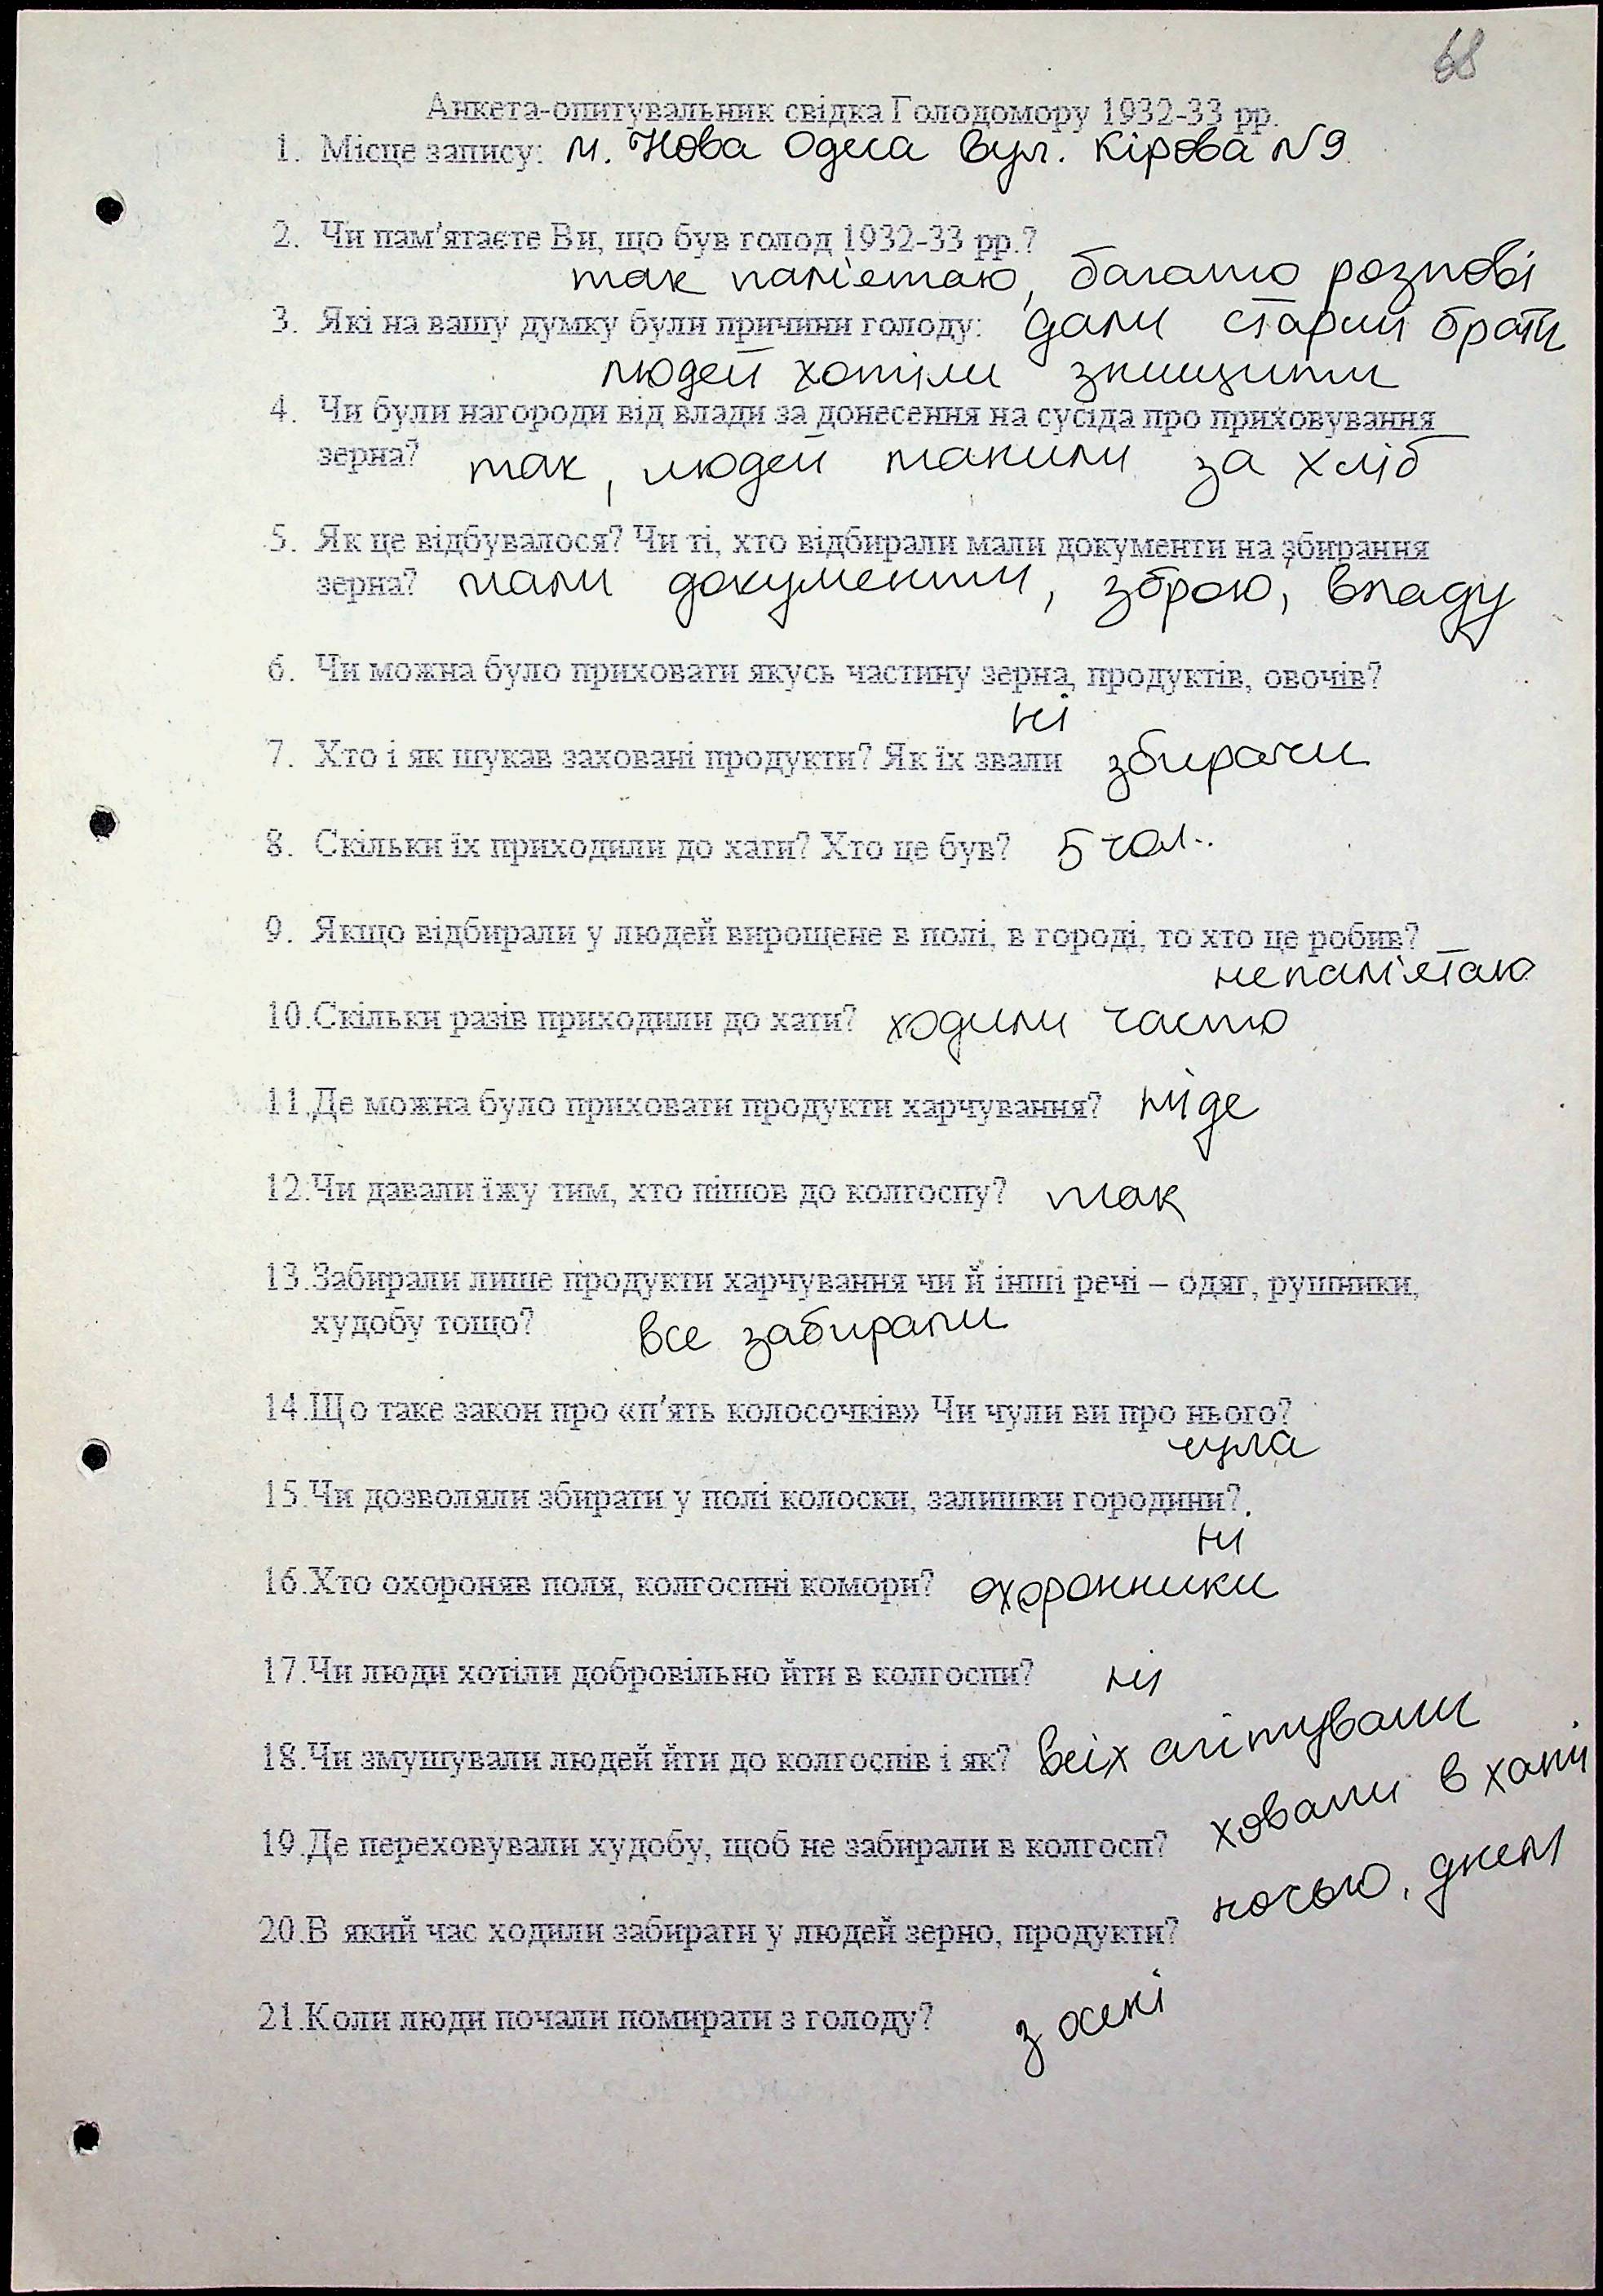 68
Анкета-опитувальник свідка Голодомору 1932-33 рр.
1. Місце запису: м. Нова Одеса вул. Кірова №9
2. Чи пам'ятаєте Ви, що був голод 1932-33 рр.?
так пам'ятаю, багато розпові
3. Які на вашу думку були причини голоду: дали старші брати
людей хотіли знищити
4. Чи були нагороди від влади за донесення на сусіда про приховування
зерна? так, людей манили за хліб
5. Як це відбувалося? Чи ті, хто відбирали мали документи на збирання
зерна? мали документи, зброю, владу
6. Чи можна було приховати якусь частину зерна, продуктів, овочів?
ні
7. Хто і як шукав заховані продукти? Як їх звали збирачи
8. Скільки їх приходили до хати? Хто це був? 5 чол.
9. Якщо відбирали у людей вирощене в полі, в городі, то хто це робив?
не пам'ятаю
10. Скільки разів приходили до хати? ходили часто
11. Де можна було приховати продукти харчування? ніде
12. Чи давали їжу тим, хто пішов до колгоспу? так
13. Забирали лише продукти харчування чи й інші речі – одяг, рушники,
худобу тощо? все забирали
14. Що таке закон про «п'ять колосочків» Чи чули ви про нього?
чула
15. Чи дозволяли збирати у полі колоски, залишки городини?
ні
16. Хто охороняв поля, колгоспні комори? охоронники
17. Чи люди хотіли добровільно йти в колгоспи? ні
18. Чи змушували людей йти до колгоспів і як? всіх агітували
19. Де переховували худобу, щоб не забирали в колгосп? ховали в хати
20. В який час ходили забирати у людей зерно, продукти? ночью, днем
21. Коли люди почали помирати з голоду? з осені